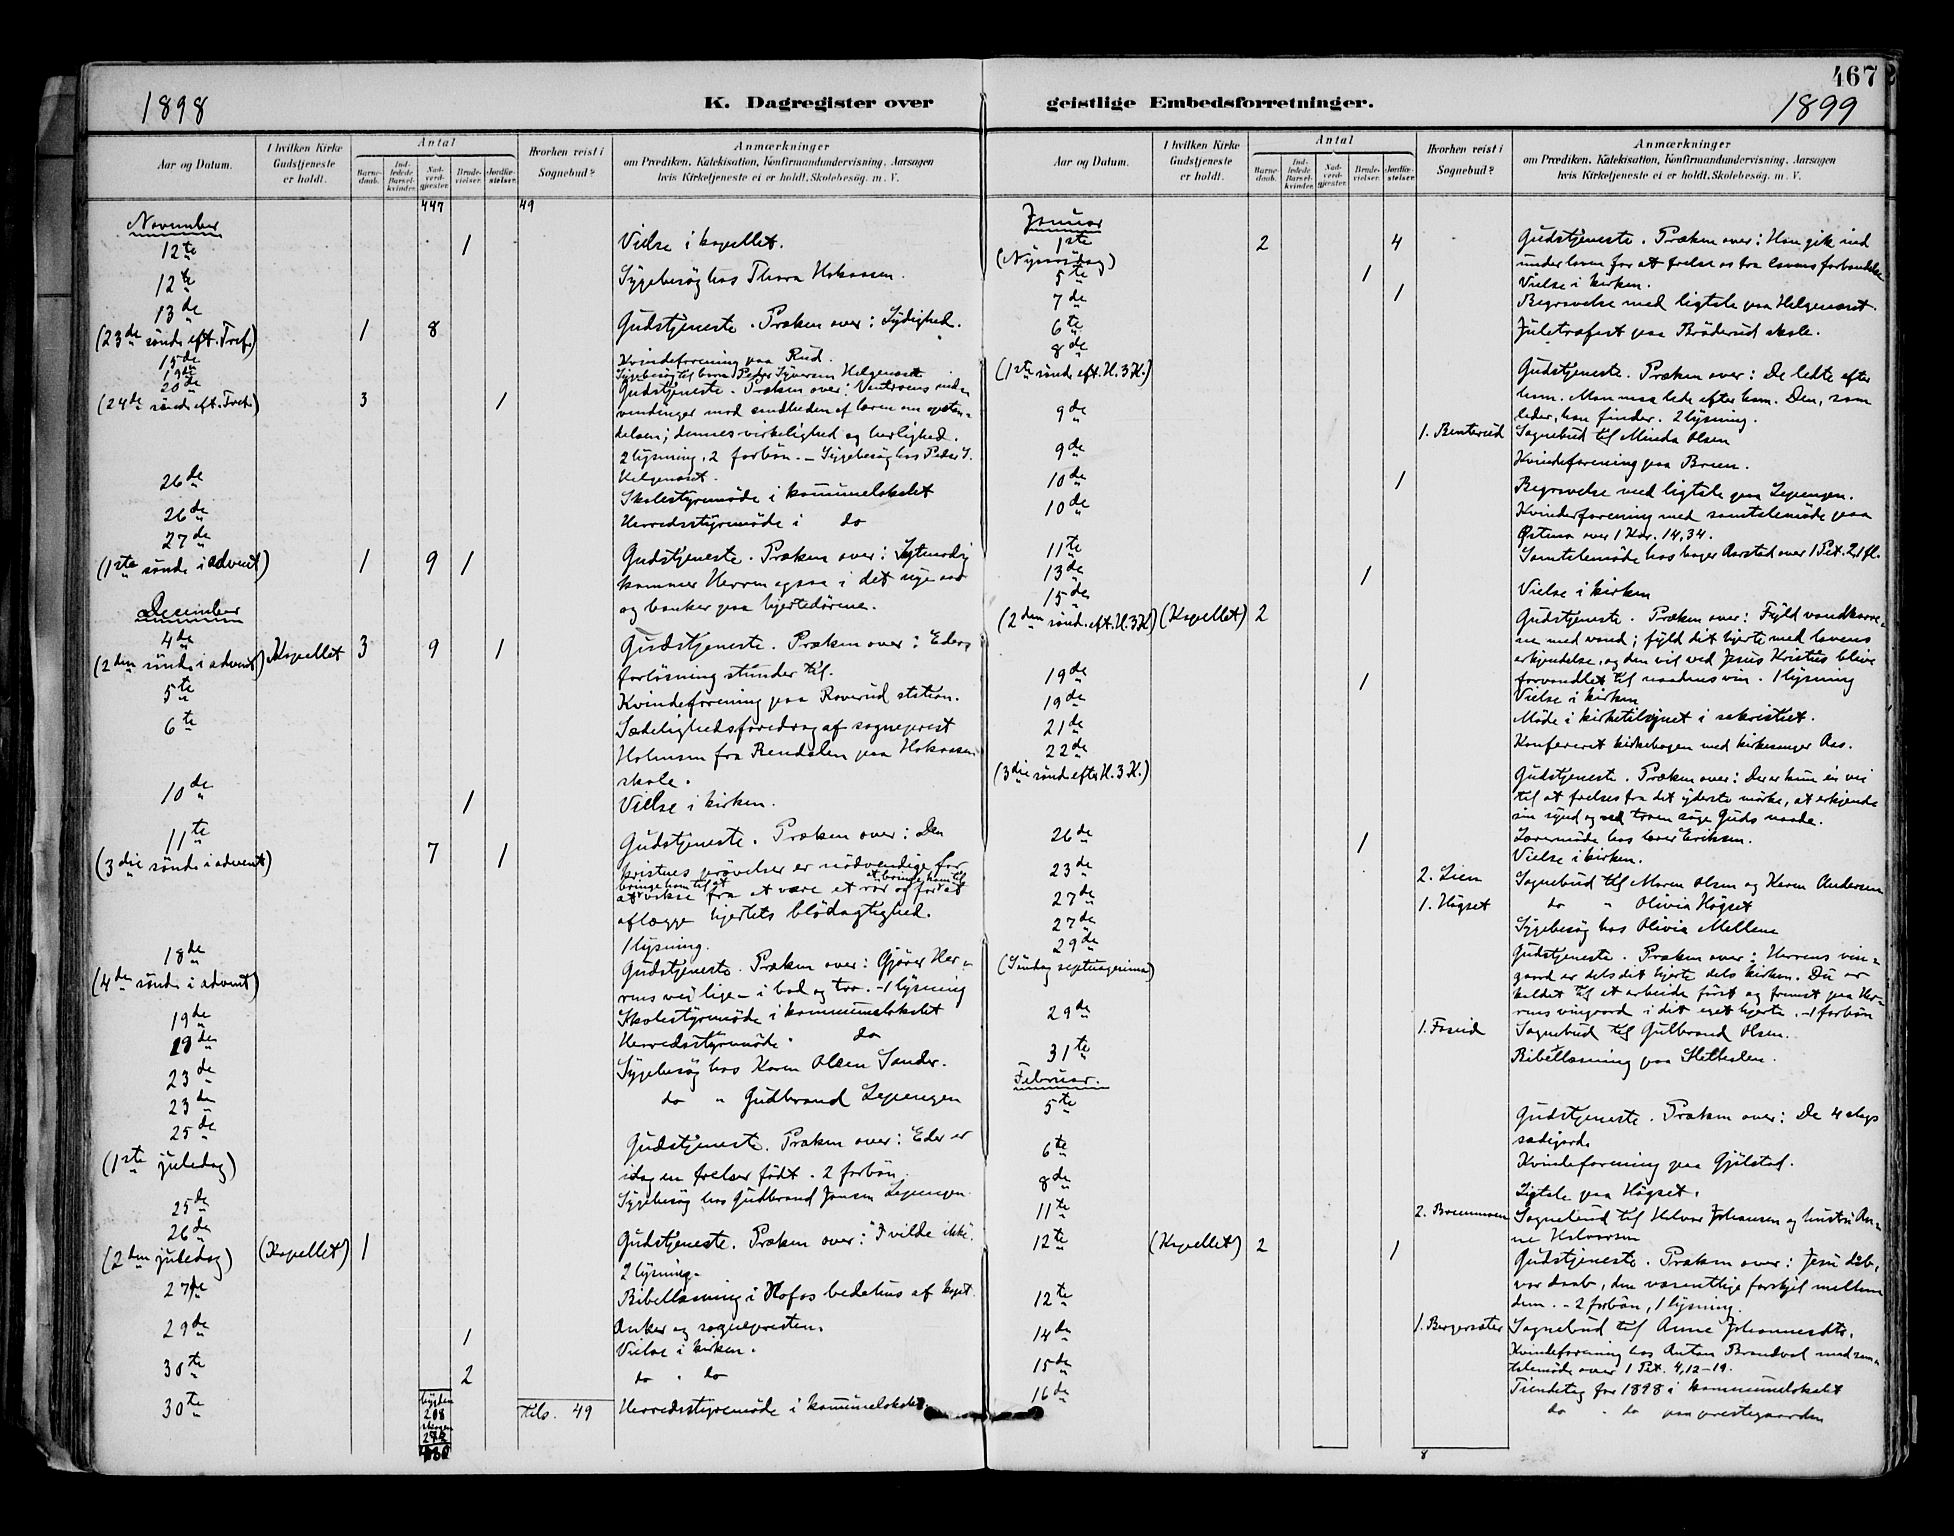 467
1898
K. Dagregister over geistlige Embedsforretninger.
1899
Aar og Datum.
I hvilken Kirke Gudstjeneste er holdt.
Antal
Barnedaab.
Indledede Barselkvinder.
Nadverdgjester.
Brudevielser.
Jordfæstelser.
Hvorhen reist i Sognebud?
Anmærkninger
om Prædiken, Katekisation, Konfirmandundervisning, Aarsagen
hvis Kirketjeneste ei er holdt, Skolebesøg, m. V.
447 49
November
12te 1 Vielse i kapellet.
12te Sygebesøg hos Thora Hokaasen.
13de
(23de sønd. eft. Tref.) 1 8 Gudstjeneste. Præken over: Lydighed.
15de Kvindeforening paa Rud.
19de Sygebesøg til barn Peder Syversen Helgenaset
20de Gudstjeneste. Præken over: Vantroens ind-
(24de sønd. eft. Tref.) 3 1 vendinger mod sandheden af læren om opstan-
delsen; dennes virkelighed og herlighed.
2 lysning, 2 forbøn. – Sygebesøg hos Peder S.
Helgenaset.
26de Skolestyremøde i kommunelokalet
26de Herredsstyremøde i do
27de
(1ste sønd. i advent) 1 9 1 Gudstjeneste. Præken over: Sagtmodig
kommer Herren ogsaa i det nye aar
og banker paa hjertedørene.
December
4de
(2den sønd. i advent) Kapellet 3 9 1 Gudstjeneste. Præken over: Eders
forløsning stunder til.
5te Kvindeforening paa Roverud station.
6te Sædelighedsforedrag af sogneprest
Holmsen fra Rendalen paa Hokaasen
skole.
10de 1 Vielse i kirken.
11te
(3die sønd. i advent) 7 1 Gudstjeneste. Præken over: Den
kristnes prøvelser er nødvendige for
at bringe ham til
bringe ham til at
at vokse fra at være et rør og for at
aflægge hjertets blødagtighed.
1 lysning.
18de
(4de sønd. i advent) Gudstjeneste. Præken over: Gjører Her-
rens vei lige – i bod og tro. – 1 lysning
19de Skolestyremøde i kommunelokalet
19de Herredsstyremøde " do
23de Sygebesøg hos Karen Olsen Sander.
23de do " Gudbrand Lepengen
25de
(1ste juledag) Gudstjeneste. Præken over: Eder er
idag en frelser født. 2 forbøn.
25de Sygebesøg hos Gudbrand Jansen Lepengen.
26de
(2den juledag) (Kapellet) 1 Gudstjeneste. Præken over: "I vilde ikke".
2 lysning.
27de Bibellæsning i Hofos bedehus af kapt.
Anker og sognepresten.
29de 1 Vielse i kirken.
30te 2 do " do
30te Tils. 49 Herredsstyremøde i kommunelokalet.
208
Aar og Datum.
I hvilken Kirke Gudstjeneste er holdt.
Antal
Barnedaab.
Indledede Barselkvinder.
Nadverdgjester.
Brudevielser.
Jordfæstelser.
Hvorhen reist i Sognebud?
Anmærkninger
om Prædiken, Katekisation, Konfirmandundervisning, Aarsagen
hvis Kirketjeneste ei er holdt, Skolebesøg, m. V.
Januar
1ste 2 4 Gudstjeneste. Præken over: Han gik ind
(Nyaarsdag) under loven for at frelse os fra lovens forbandelse
5te 1 Vielse i kirken.
7de 1 Begravelse med ligtale paa Helgenaset.
6te Juletræfest paa Bråderud skole.
8de
(1ste sønd. eft. H. 3 K.) Gudstjeneste. Præken over: De ledte efter
ham. Man maa lede efter ham. Den, som
leder, han finder. 2 lysning.
9de 1. Benterud Sognebud til Minda Olsen
9de Kvindeforening paa Broen.
10de 1 Begravelse med ligtale paa Lepengen.
10de Kvindeforening med samtalemøde paa
Østmo over 1 Kor. 14,34.
11te Samtalemøde hos bager Aarstad over 1 Pet. 2,1 fl.
13de 1 Vielse i kirken
15de
(2den sønd. eft. H. 3 K) (Kapellet) 2 Gudstjeneste. Præken over: Fyld vandkarre-
ne med vand; fyld dit hjerte med lovens
erkjendelse, og den vil ved Jesus Kristus blive
forvandlet til naadens vin. 1 lysning
19de 1 Vielse i kirken
19de Møde i kirketilsynet i sakristiet.
21de Konfereret kirkebogen med kirkesanger Aas.
22de
(3die sønd. efter H. 3 K.) Gudstjeneste. Præken over: Der er kun én vei
til at frelses fra det yderste mørke, at erkjende
sin synd og ved troen søge Guds naade.
Læremøde hos lærer Eriksen.
26de 1 Vielse i kirken.
23de 2. Lien Sognebud til Maren Olsen og Karen Andersen
27de 1. Høgset do " Olivia Høgset
27de Sygebesøg hos Olivia Mellem
29de
(Søndag septuagesima) Gudstjeneste. Præken over: Herrens vin-
gaard er dels dit hjerte dels kirken. Du er
kaldet til at arbeide først og fremst paa Her-
rens vingaard i dit eget hjerte. – 1 forbøn
29de Sognebud til Gulbrand Olsen.
31te Bibellæsning paa
Februar.
5te Gudstjeneste. Præken over: De 4 slags
sædejord.
6te Kvindeforening paa Gjølstad.
8de Ligtale paa Høgset.
11te 2. Sognebud til Halvor Johansen og hustru An-
ne Halvorsen
12te (Kapellet) 2 1 Gudstjeneste. Præken over: Jesu dåb,
vor daab, den væsentlige forskjel mellem
dem. – 2 forbøn, 1 lysning.
12te 1. Bergersæter Sognebud til Anne Johannesdtr.
14de Kvindeforening hos Anton Brandvol med sam-
talemøde over 1 Pet. 4,12–19.
15de Tiendetag for 1898 i kommunelokalet
16de do " do paa prestegaarden
8